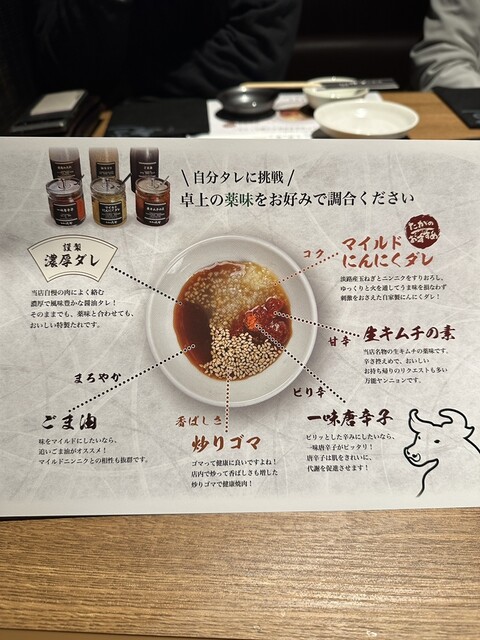 自分タレに挑戦
卓上の薬味をお好みで調合ください
謹製
濃厚ダレ
当店自慢の肉によく絡む
濃厚で風味豊かな醤油タレ！
そのままでも、薬味と合わせても、
おいしい特製たれです。
コク
マイルド
にんにくダレ
おすすめ
淡路産玉ねぎとニンニクをすりおろし、
ゆっくりと火を通してうま味を損なわず
刺激をおさえた自家製にんにくダレ！
甘辛
生キムチの素
当店名物の生キムチの薬味です。
辛さ控えめで、おいしい
お持ち帰りのリクエストも多い
万能ヤンニョンです。
まろやか
ごま油
味をマイルドにしたいなら、
追いごま油がオススメ！
マイルドニンニクとの相性も抜群です。
香ばしさ
炒りゴマ
ゴマって健康に良いですよね！
店内で炒って香ばしさも増した
炒りゴマで健康焼肉！
ピリ辛
一味唐辛子
ピリッとした辛みにしたいなら、
一味唐辛子がピッタリ！
唐辛子は肌をきれいに、
代謝を促進させます！